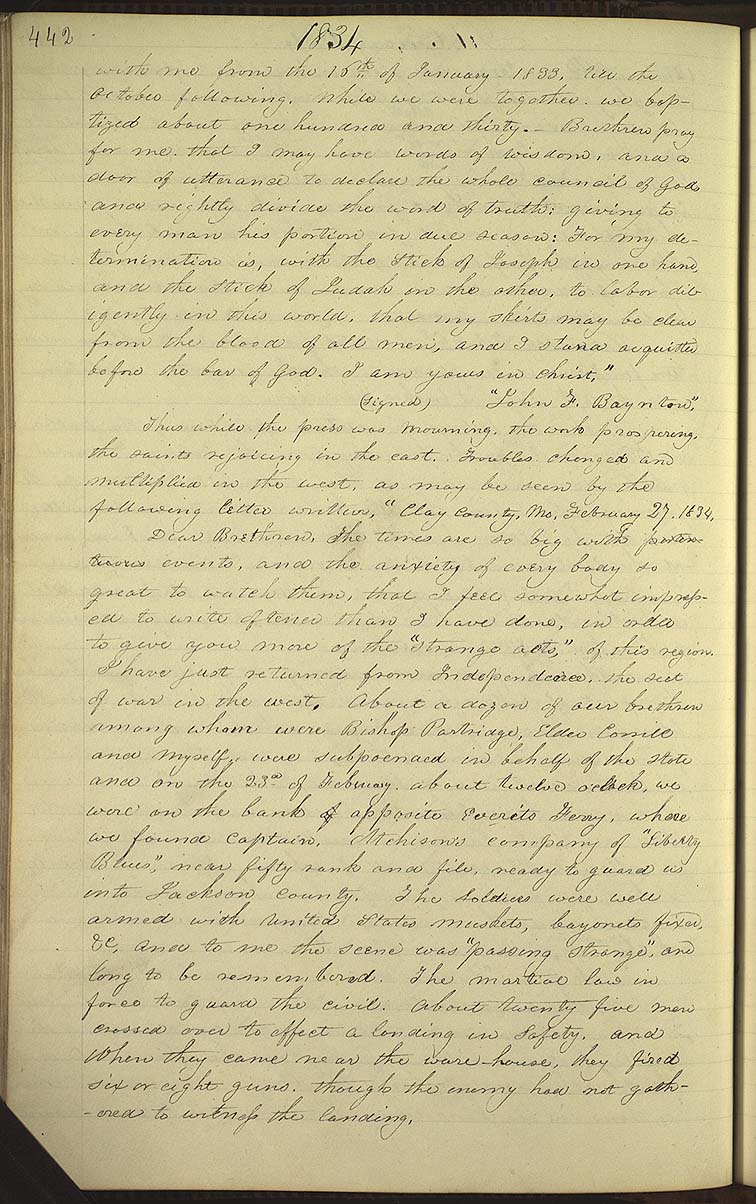 442
1834
with me from the 16th of January 1833, till the
October following. While we were together we bap-
tized about one hundred and thirty. — Brethren pray
for me that I may have words of wisdom, and a
door of utterance to declare the whole council of God,
and rightly divide the word of truth; giving to
every man his portion in due season: For my de-
termination is, with the Stick of Joseph in one hand
and the Stick of Judah in the other, to labor dil-
igently in this world, that my skirts may be clear
from the blood of all men, and I stand acquitted
before the bar of God. I am yours in Christ,"
(signed) "John F. Baynton".
Thus while the press was mourning, the work prospering,
the saints rejoicing in the east. Troubles changed and
multiplied in the west, as may be seen by the
following letter written, "Clay County, Mo, February 27. 1834,
Dear Brethren, The times are so big with porten-
tuous events, and the anxiety of every body so
great to watch them, that I feel somewhat impress-
ed to write oftener than I have done, in order
to give you more of the "strange acts," of this region.
I have just returned from Independence, the seet
of war in the west. About a dozen of our brethren
among whom were Bishop Partridge, Elder Corrill
and myself, were subpoenaed in behalf of the state
and on the 23d of February about twelve oclock, we
were on the bank opposite Everits Ferry, where
we found Captain, Atchison's company of "Liberty
Blues", near fifty rank and file, ready to guard us
into Jackson County. The Soldiers were well
armed with United States muskets, bayonets fixed,
&c, and to me the scene was "passing strange", and
long to be remembered. The martial law in
force to guard the civil. About twenty five men
crossed over to effect a landing in safety. and
When they came near the ware-house, they fired
six or eight guns. though the enemy had not gath-
-ered to witness the landing.